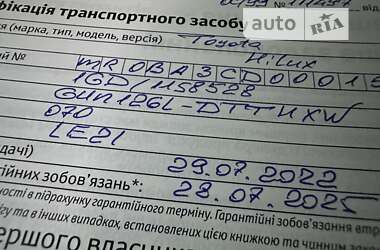 auto RIA
фікація транспортного засобу
(марка, тип, модель, версія) Toyota
Hilux
MR0BA3CD00015
1GD/1158528
GUN126L-DTTHXW
070
LE21
дачі) 29.07.2022
ійних зобов'язань*: 28.07.2025
ності в підрахунку гарантійного терміну. Гарантійні зобов'язання втра
гу та в інших випадках, встановлених цією книжкою та чинним зако
ершого власни